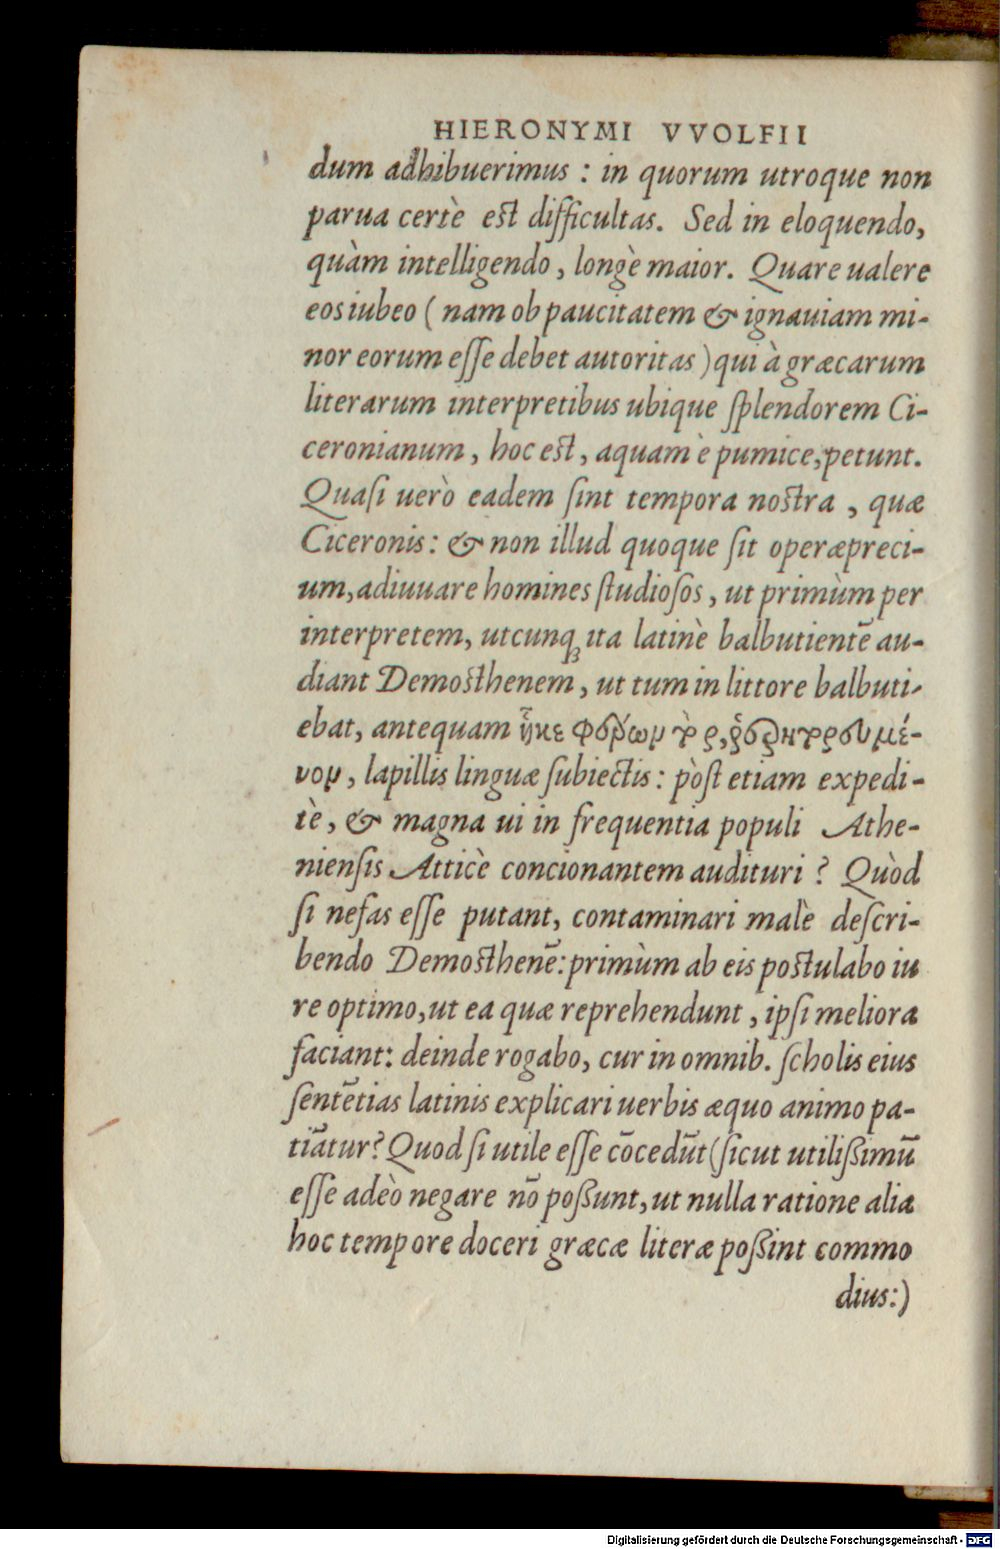 HIERONYMI VVOLFII
dum adhibuerimus : in quorum utroque non
parua certè est difficultas. Sed in eloquendo,
quàm intelligendo, longè maior. Quare ualere
eos iubeo ( nam ob paucitatem & ignauiam mi-
nor eorum eſſe debet autoritas ) qui à græcarum
literarum interpretibus ubique ſplendorem Ci-
ceronianum, hoc est, aquam è pumice, petunt.
Quaſi uerò eadem ſint tempora nostra, quæ
Ciceronis: & non illud quoque ſit operæpreci-
um, adiuuare homines ſtudioſos, ut primùm per
interpretem, utcunqꝫ ita latinè balbutientē au-
diant Demosthenem, ut tum in littore balbuti-
ebat, antequam ἧκε φορῶν τὸ
νον, lapillis linguæ ſubiectis: pòſt etiam expedi-
tè, & magna ui in frequentia populi Athe-
nienſis Atticè concionantem audituri ? Quòd
ſi nefas eſſe putant, contaminari malè deſcri-
bendo Demosthenē: primùm ab eis postulabo iu
re optimo, ut ea quæ reprehendunt, ipſi meliora
faciant: deinde rogabo, cur in omnib. ſcholis eius
ſentētias latinis explicari uerbis æquo animo pa-
tiātur? Quod ſi utile eſſe cōcedūt (ſicut utiliſſimū
eſſe adeò negare nō poſſunt, ut nulla ratione alia
hoc tempore doceri græcæ literæ poſſint commo
dius:)
Digitalisierung gefördert durch die Deutsche Forschungsgemeinschaft - DFG